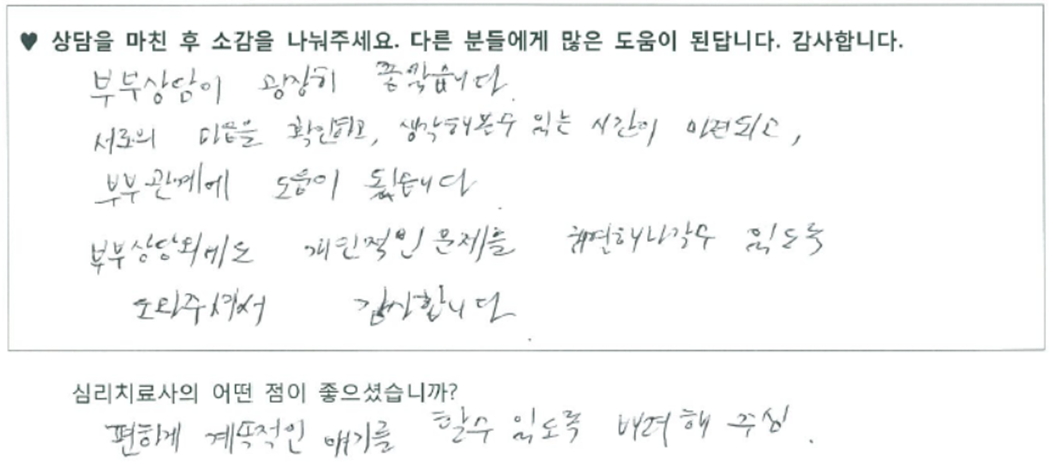 ♥ 상담을 마친 후 소감을 나눠주세요. 다른 분들에게 많은 도움이 된답니다. 감사합니다.
부부상담이 굉장히 좋았습니다.
서로의 마음을 확인하고, 생각해볼수 있는 시간이 마련되고,
부부관계에 도움이 됬습니다.
부부상담외에도 개인적인 문제를 해결해나갈수 있도록
도와주셔서 감사합니다.
심리치료사의 어떤 점이 좋으셨습니까?
편하게 계속적인 얘기를 할수 있도록 배려해 주심.